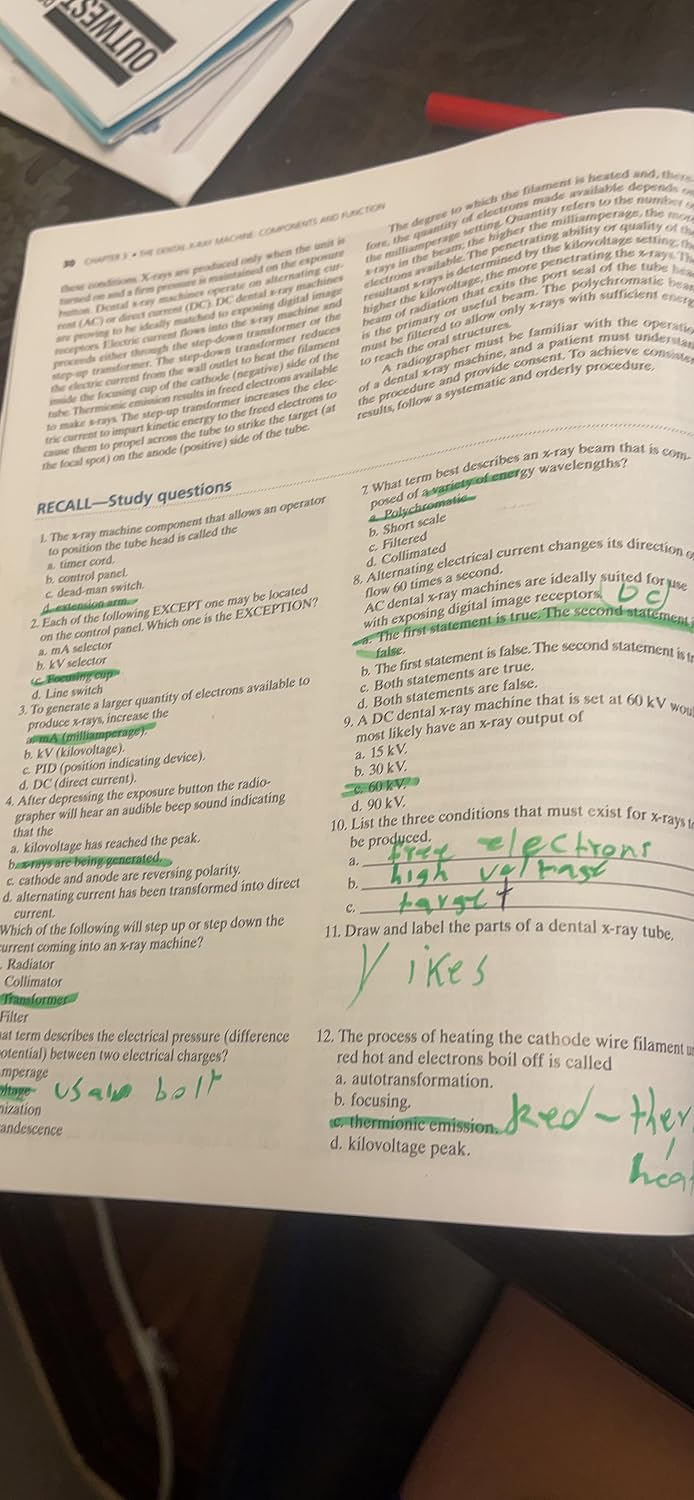 OUTWEST
30 CHAPTER 3 • THE DENTAL X-RAY MACHINE: COMPONENTS AND FUNCTION
these conditions. X-rays are produced only when the unit is
turned on and a firm pressure is maintained on the exposure
button. Dental x-ray machines operate on alternating cur-
rent (AC) or direct current (DC). DC dental x-ray machines
are proving to be ideally matched to exposing digital image
receptors. Electric current flows into the x-ray machine and
proceeds either through the step-down transformer or the
step-up transformer. The step-down transformer reduces
the electric current from the wall outlet to heat the filament
inside the focusing cup of the cathode (negative) side of the
tube. Thermionic emission results in freed electrons available
to make x-rays. The step-up transformer increases the elec-
tric current to impart kinetic energy to the freed electrons to
cause them to propel across the tube to strike the target (at
the focal spot) on the anode (positive) side of the tube.
RECALL—Study questions
1. The x-ray machine component that allows an operator
to position the tube head is called the
a. timer cord.
b. control panel.
c. dead-man switch.
d. extension arm.
2. Each of the following EXCEPT one may be located
on the control panel. Which one is the EXCEPTION?
a. mA selector
b. kV selector
c. Focusing cup
d. Line switch
3. To generate a larger quantity of electrons available to
produce x-rays, increase the
a. mA (milliamperage).
b. kV (kilovoltage).
c. PID (position indicating device).
d. DC (direct current).
4. After depressing the exposure button the radio-
grapher will hear an audible beep sound indicating
that the
a. kilovoltage has reached the peak.
b. x-rays are being generated.
c. cathode and anode are reversing polarity.
d. alternating current has been transformed into direct
current.
Which of the following will step up or step down the
current coming into an x-ray machine?
Radiator
Collimator
Transformer
Filter
at term describes the electrical pressure (difference
otential) between two electrical charges?
mperage
ltage bolt
nization
andescence
The degree to which the filament is heated and, there-
fore, the quantity of electrons made available depends o
the milliamperage setting. Quantity refers to the number o
x-rays in the beam; the higher the milliamperage, the mor
electrons available. The penetrating ability or quality of th
resultant x-rays is determined by the kilovoltage setting; th
higher the kilovoltage, the more penetrating the x-rays. Th
beam of radiation that exits the port seal of the tube hea
is the primary or useful beam. The polychromatic bea
must be filtered to allow only x-rays with sufficient energ
to reach the oral structures.
A radiographer must be familiar with the operatio
of a dental x-ray machine, and a patient must understan
the procedure and provide consent. To achieve consiste
results, follow a systematic and orderly procedure.
7. What term best describes an x-ray beam that is com-
posed of a variety of energy wavelengths?
a. Polychromatic
b. Short scale
c. Filtered
d. Collimated
8. Alternating electrical current changes its direction o
flow 60 times a second.
AC dental x-ray machines are ideally suited for use
with exposing digital image receptors. DC
a. The first statement is true. The second statement i
false.
b. The first statement is false. The second statement is tr
c. Both statements are true.
d. Both statements are false.
9. A DC dental x-ray machine that is set at 60 kV woul
most likely have an x-ray output of
a. 15 kV.
b. 30 kV.
c. 60 kV. ?
d. 90 kV.
10. List the three conditions that must exist for x-rays to
be produced.
a. free electrons
b. high voltage
c. target
11. Draw and label the parts of a dental x-ray tube.
Yikes
12. The process of heating the cathode wire filament un
red hot and electrons boil off is called
a. autotransformation.
b. focusing.
c. thermionic emission. Red - ther
hea
d. kilovoltage peak.